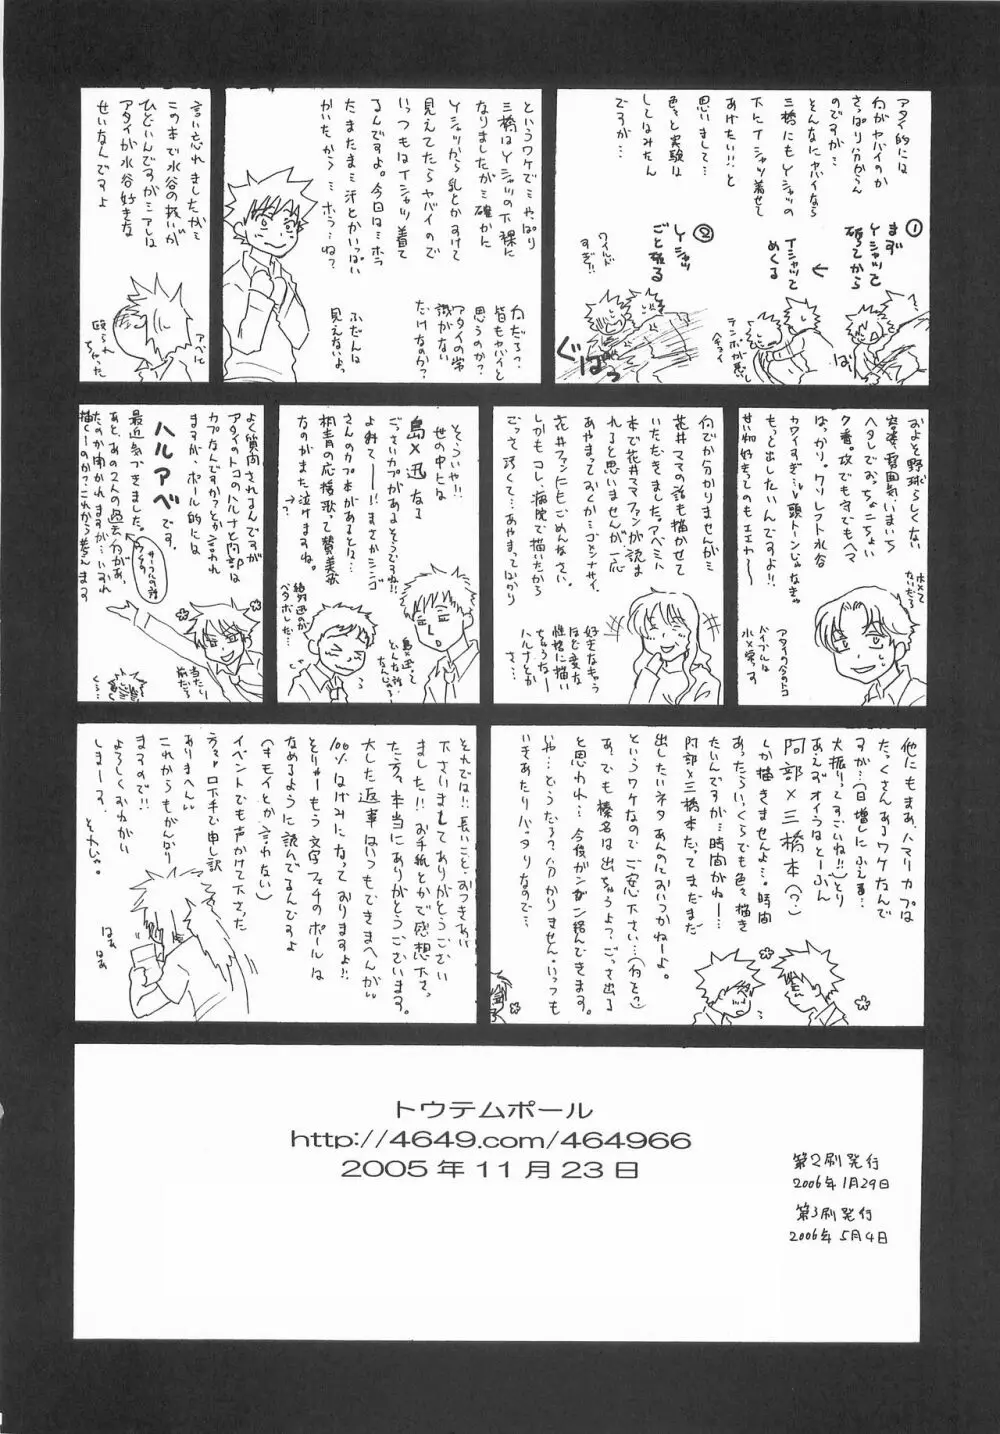 アタイ的には
何がヤバイのか
さっぱり分からん
のですが…
そんなにヤバイなら
三橋にもYシャツの
下にTシャツ着せて
あげたい!!と
思いまして…
色々と実験は
してはみたん
ですが…
①
まず
Yシャツを
破ってから
Tシャツを
めくる
②
Yシャツ
ごと破る
ワイルド
すぎ!!
テンポが悪い
ぐばっ
というワケで…やっぱり
三橋はYシャツの下裸に
なりましたが…確かに
Yシャツから乳とかすけて
見えてたらヤバイので
いっつもはTシャツ着て
るんですよ。今回は…ホラ
たまたま…汗とかいっぱい
かいたから…ホラ…ね?
何だろう?
皆もヤバイと
思うのか?
アタイの常
識がない
だけなのか?
ふだんは
見えないよ。
言い忘れましたが…
この本で水谷の扱いが
ひどいんですが…アレは
アタイが水谷好きな
せいなんですよ
アベに
殴られ
ちゃった
およそ野球らしくない
容姿・雰囲気・いまいち
ヘタレでおっちょこちょい
ク番。攻でも守でもヘマ
ばっかり。クソレフト水谷
カワイすぎ…頭トーンじゃなきゃ
もっと出したいんですよ!!
せい物好きってのもエエわ〜
アタイの今のトコ
バイブルは
水×栄っす
何でか分かりませんが…
花井ママの話も描かせて
いただきました。アベミハ
本で花井ママファンが読ま
れると思いませんが一応
あやまっておくか…ゴメンナサイ。
花井ファンにもごめんなさい。
しかもコレ、病院で描いたから
ごっさ汚くて…あやまってばかり
好きなキャラ
ほど変な
性格に描い
ちゃうなー
ハルナとか
さ…
そそういや!!
世の中には
島×迅な
ごっさいカプがあるそうですね!!
よみてー!!まさかシンゴ
さんのカプ本があるとは…
桐青の応援歌って賛美歌
なのがまた泣けますね。
島×迅って
どんな話
なんじゃ
絶対迅のが
ベタボレした…
よく質問されるんですが
アタイのトコのハルナと阿部は
カプなんですか?とか言われ
ますが、ポール的には
ハルアベです。
最近気づきました。
あと、あの2人の過去、何があっ
たのか聞かれますが…いずれ
描くーのかっこれから考えます
当たり
前だろ
くっ…
他にもまあ、ハマリカプは
たっくさんあるワケなんで
すが…(日増しにふえる…
大振りってすごいね!!)とり
あえずオイラはとーぶん
阿部×三橋本(?)
しか描きませんよ…。時間
あったらいっくらでも色々描き
たいんですが…時間がねー…
阿部×三橋本だってまだまだ
出したいネタあんのにおいつかねーよ。
というワケなのでご安心下さい…(何を?)
あ、でも榛名は出ちゃうよ?ごっさ出る
と思われ…今後がンガンガン絡んできます。
いや…どうだろ?分かりません。いっつも
いきあたりバッタりなので…
それでは!!長いこと、おつきあい
下さいましてありがとうござい
ました!!お手紙とかで感想下さっ
た方々、本当にありがとうございます。
大した返事はいつもできまへんが
100%はげみになっておりますよ!!
そりゃーもう文字フェチのポールは
なめるように読んでるんですよ
(キモイとか言わない)
イベントでも声かけて下さった
方々、口下手で申し訳
ありまへん
これからもがんばり
まするので!!
よろしくおねがい
しまーす。
それじゃ。
はぁ
はぁ
トウテムポール
http://4649.com/464966
2005年11月23日
第2刷発行
2006年1月29日
第3刷発行
2006年5月4日